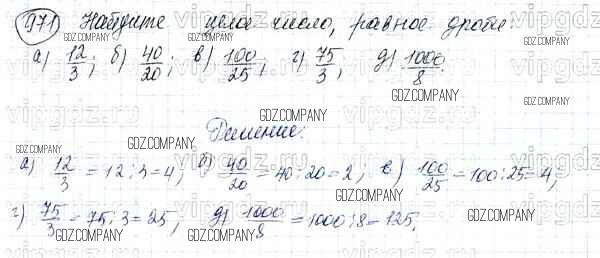 971 Найдите целое число, равное дроби:
а) 12/3; б) 40/20; в) 100/25; г) 75/3; д) 1000/8.
Решение:
а) 12/3 = 12:3 = 4; б) 40/20 = 40:20 = 2; в) 100/25 = 100:25 = 4,
г) 75/3 = 75:3 = 25, д) 1000/8 = 1000:8 = 125.
vipgdz.ru
GDZ.COMPANY